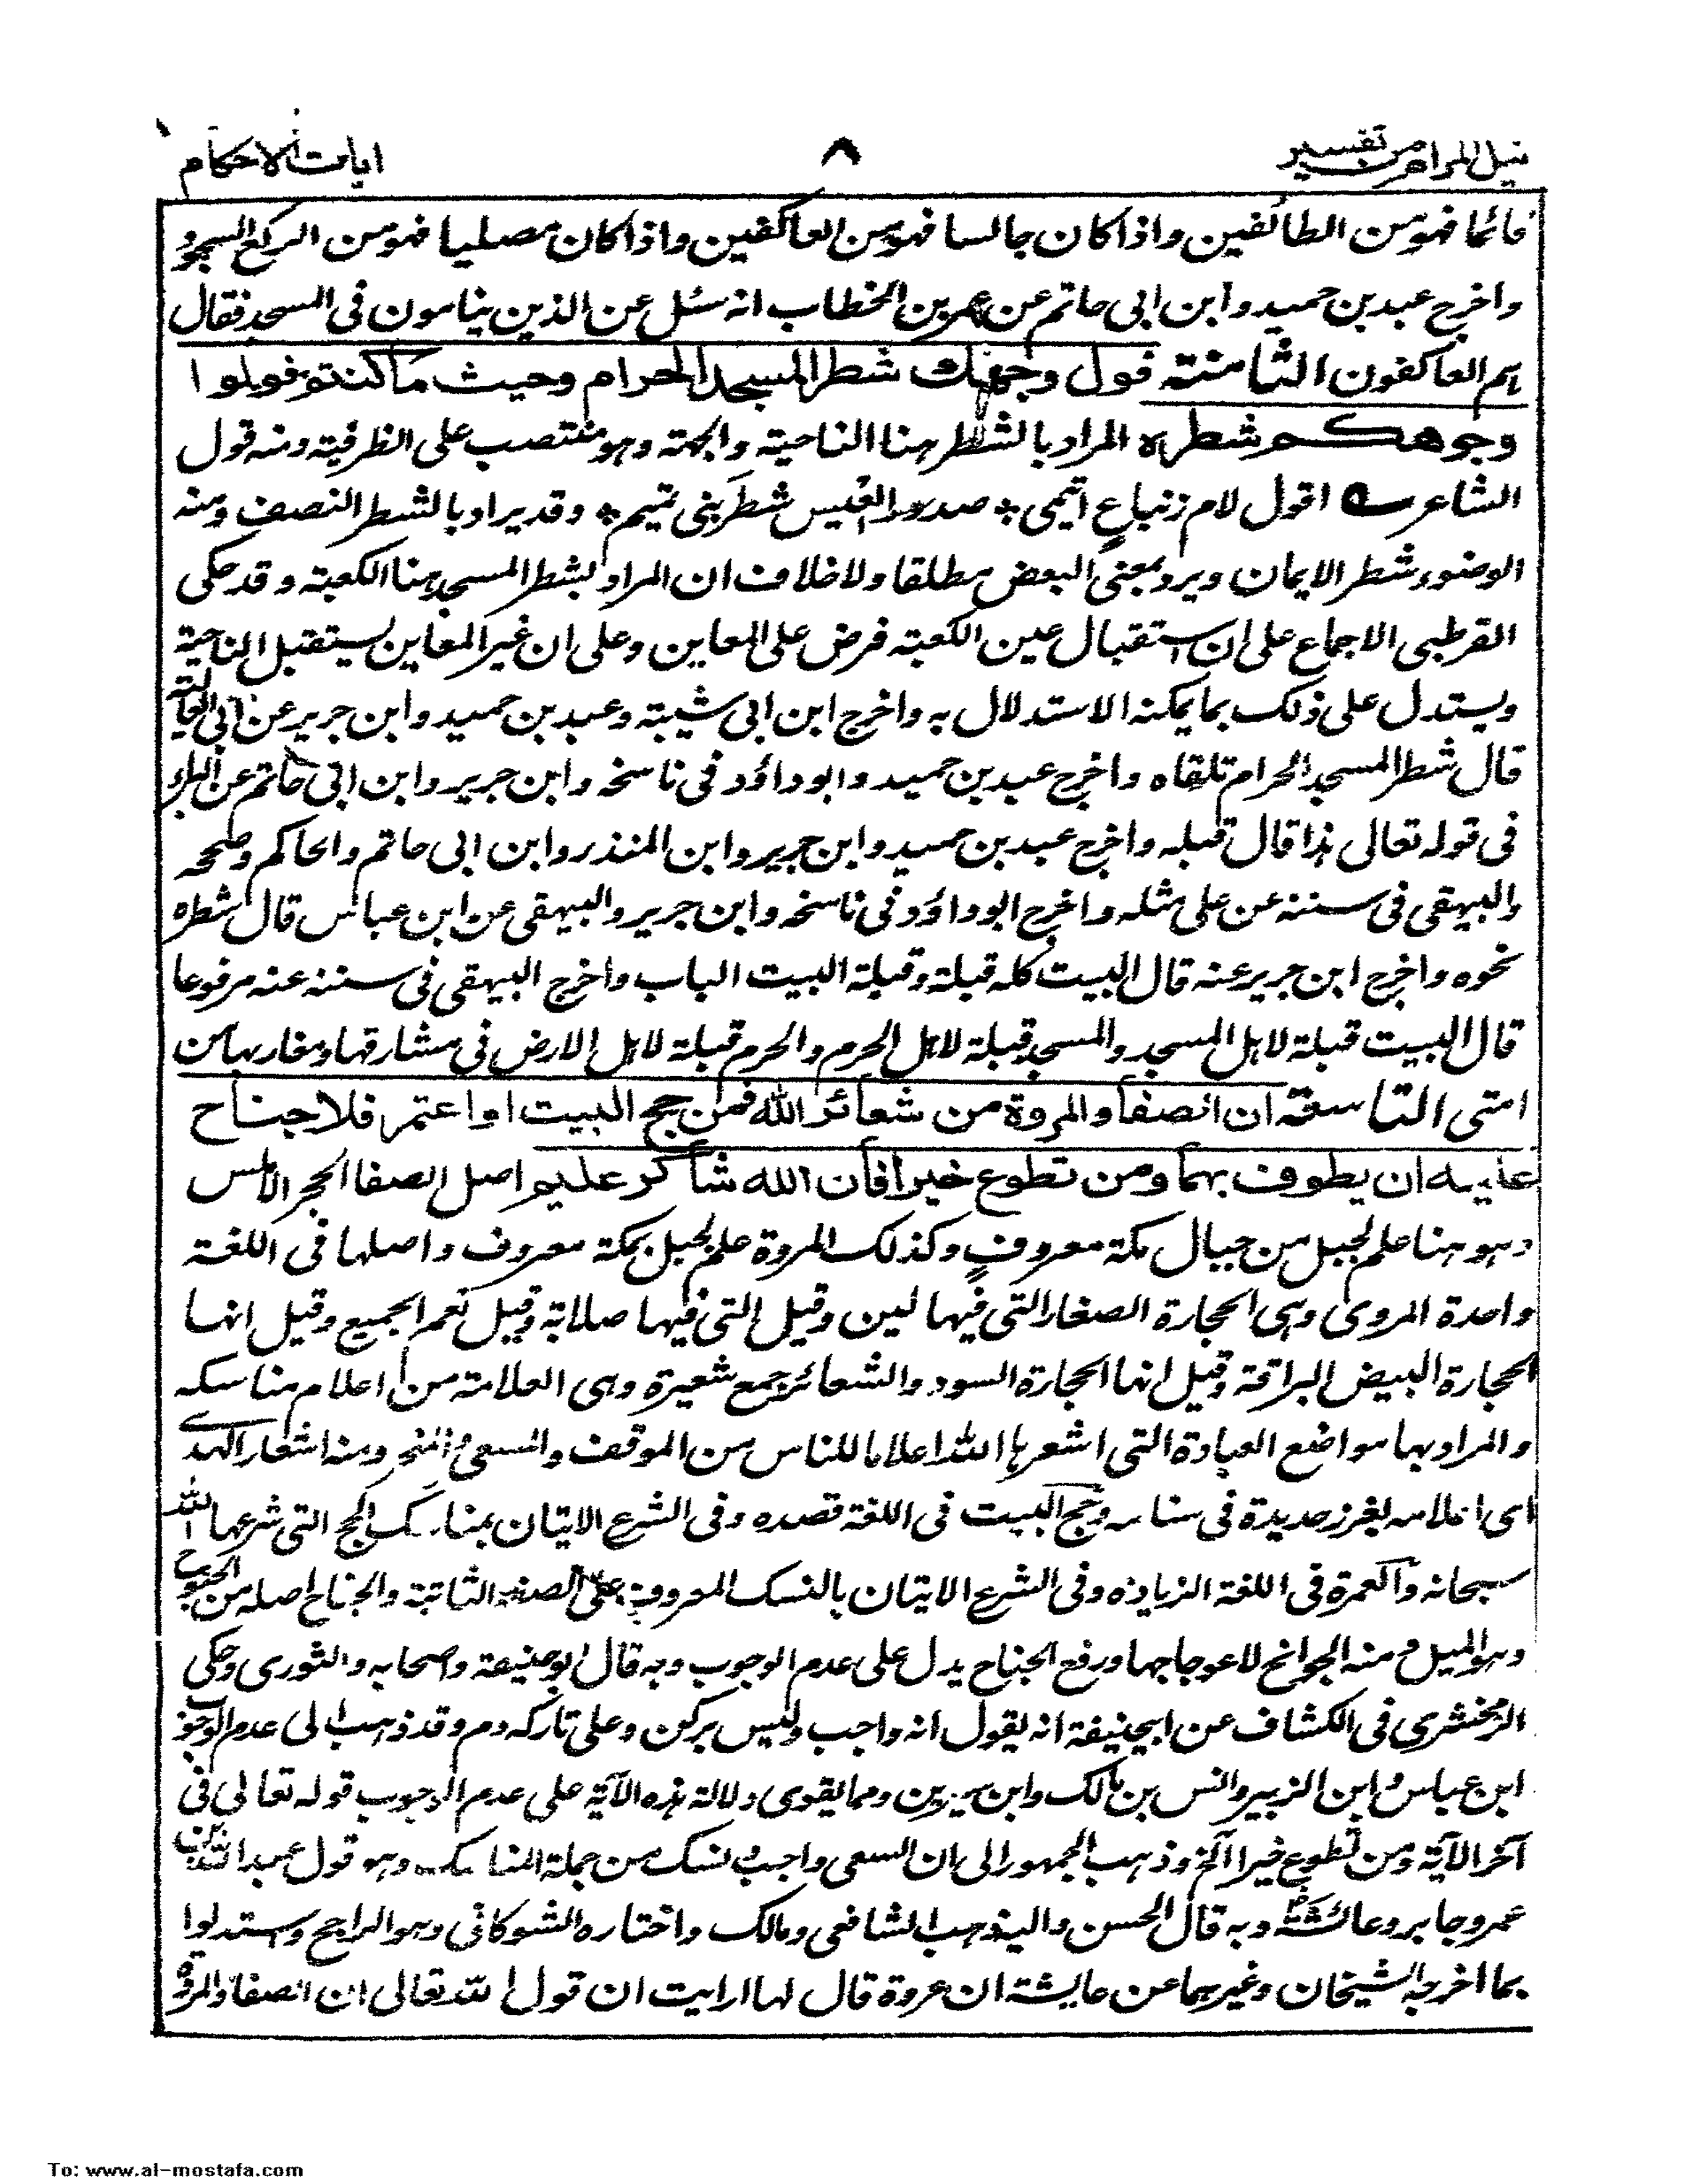 نيل المرام من تفسير
٨
ايات الاحكام
قائما فهو من الطائفين واذا كان جالسا فهو من العاكفين واذا كان مصليا فهو من الركع السجود
واخرج عبد بن حميد وابن ابى حاتم عن عمر بن الخطاب انه سئل عن الذين ينامون فى المسجد فقال
هم العاكفون الثامنة فول وجهك شطر المسجد الحرام وحيث ما كنتم فولوا
وجوهكم شطره المراد بالشطر هنا الناحية والجهة وهو منتصب على الظرفية ومنه قول
الشاعر اقول لام زنباع اقيمى * صدور العيس شطر بنى تميم * وقد يراد بالشطر النصف ومنه
الوضوء شطر الايمان ويرد بمعنى البعض مطلقا ولا خلاف ان المراد بشطر المسجد هنا الكعبة وقد حكى
القرطبى الاجماع على ان استقبال عين الكعبة فرض على المعاين وعلى ان غير المعاين يستقبل الناحية
ويستدل على ذلك بما يمكنه الاستدلال به واخرج ابن ابى شيبة وعبد بن حميد وابن جرير عن ابى العالية
قال شطر المسجد الحرام تلقاه واخرج عبد بن حميد وابو داؤد فى ناسخه وابن جرير وابن ابى حاتم عن البراء
فى قوله تعالى هذا قال قبله واخرج عبد بن حميد وابن جرير وابن المنذر وابن ابى حاتم والحاكم وصححه
والبيهقى فى سننه عن على مثله واخرج ابو داؤد فى ناسخه وابن جرير والبيهقى عن ابن عباس قال شطره
نحوه واخرج ابن جرير عنه قال البيت كله قبلة وقبلة البيت الباب واخرج البيهقى فى سننه عنه مرفوعا
قال البيت قبلة لاهل المسجد والمسجد قبلة لاهل الحرم والحرم قبلة لاهل الارض فى مشارقها ومغاربها من
امتى التاسعة ان الصفا والمروة من شعائر الله فمن حج البيت او اعتمر فلا جناح
عليه ان يطوف بهما ومن تطوع خيرا فان الله شاكر عليم اصل الصفا الحجر الاملس
وهو هنا علم لجبل من جبال مكة معروف وكذلك المروة علم لجبل بمكة معروف واصلها فى اللغة
واحدة المروى وهى الحجارة الصغار التى فيها لين وقيل التى فيها صلابة وقيل نعم الجميع وقيل انها
الحجارة البيض البراقة وقيل انها الحجارة السود والشعائر جمع شعيرة وهى العلامة من اعلام مناسكه
والمراد بها مواضع العبادة التى اشعرها الله اعلاما للناس من الموقف والمسعى والمنحر ومنه اشعار الهدى
اى اعلامه بغرز حديدة فى سنامه وحج البيت فى اللغة قصده وفى الشرع الاتيان بمناسك الحج التى شرعها الله
سبحانه والعمرة فى اللغة الزيادة وفى الشرع الاتيان بالنسك المعروف على الصفة الثابتة والجناح اصله من الجنوح
وهو الميل ومنه الجوانح لاعوجاجها ورفع الجناح يدل على عدم الوجوب وبه قال ابو حنيفة واصحابه والثورى وحكى
الزمخشرى فى الكشاف عن ابيحنيفة انه يقول انه واجب وليس بركن وعلى تاركه دم وقد ذهب الى عدم الوجوب
ابن عباس وابن الزبير وانس بن مالك وابن سيرين ومما يقوى دلالة هذه الآية على عدم الوجوب قوله تعالى فى
آخر الآية ومن تطوع خيرا الخ وذهب الجمهور الى ان السعى واجب ونسك من جملة المناسك وهو قول عبد الله بن
عمر وجابر وعائشة وبه قال الحسن واليه ذهب الشافعى ومالك واختاره الشوكانى وهو الراجح واستدلوا
بما اخرجه الشيخان وغيرهما عن عايشة ان عروة قال لها ارايت ان قول الله تعالى ان الصفا والمروة
To: www.al-mostafa.com